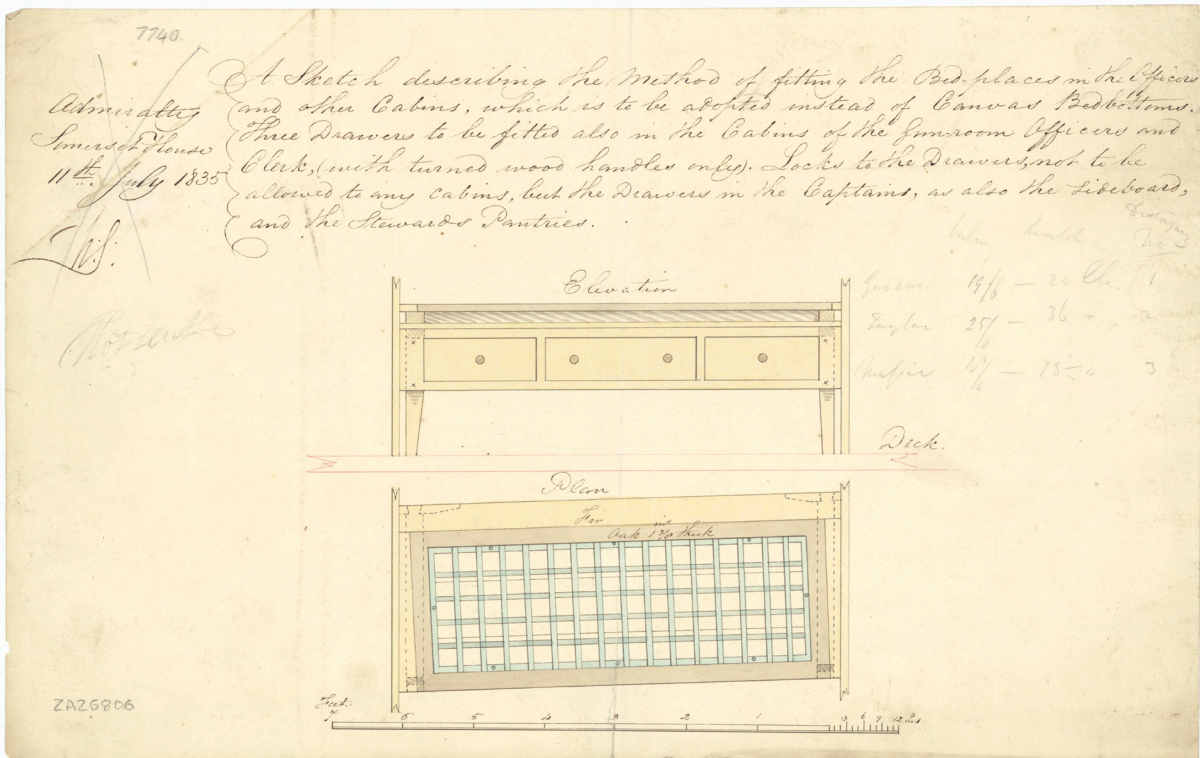 7740
Admiralty
Somerset House
11th July 1835
A Sketch describing the Method of fitting the Bed-places in the Officers
and other Cabins, which is to be adopted instead of Canvas Bedbottoms.
Three Drawers to be fitted also in the Cabins of the Gun-room Officers and
Clerk, (with turned wood handles only). Locks to the Drawers, not to be
allowed to any cabins, but the Drawers in the Captains, as also the Sideboard,
and the Stewards Pantries.
Elevation
19/6 — 1
Taylor 25/ — 36
3
Deck.
Plan
Fir
Oak 1 3/8 ins thick
Feet:
7 6 5 4 3 2 1 3 6 9 12 Ins
ZAZ6806